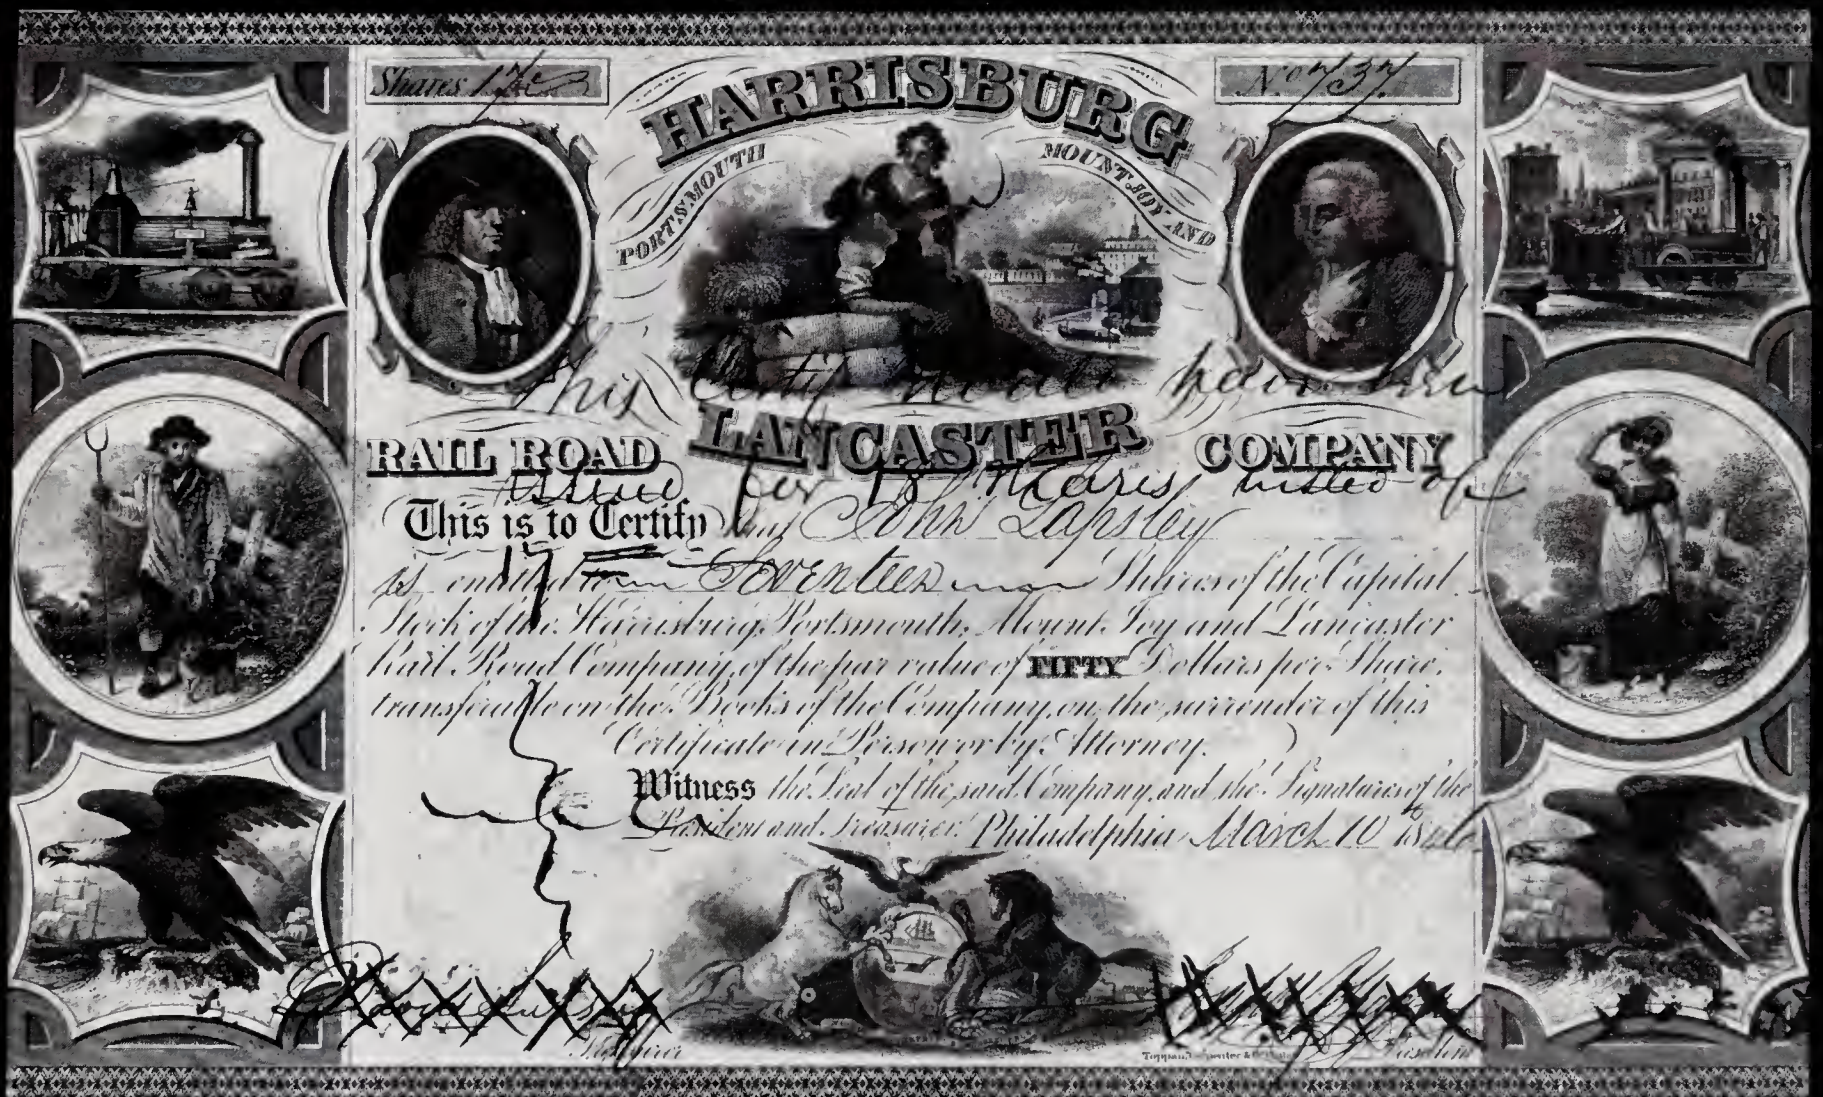 Shares 17
No 737.
HARRISBURG
PORTSMOUTH MOUNT JOY AND
This Certif should have been
LANCASTER
RAIL ROAD COMPANY
issued for 18 Shares insted of
This is to Certify that John Lapsley
17
is entitled to Seventeen Shares of the Capital
Stock of the Harrisburg, Portsmouth, Mount Joy and Lancaster
Rail Road Company, of the par value of FIFTY Dollars per Share,
transferable on the Books of the Company, on the surrender of this
Certificate in Person or by Attorney.
Witness the Seal of the said Company, and the Signatures of the
President and Treasurer. Philadelphia March 10th 18
Treasurer
President
Toppan, Carpenter &